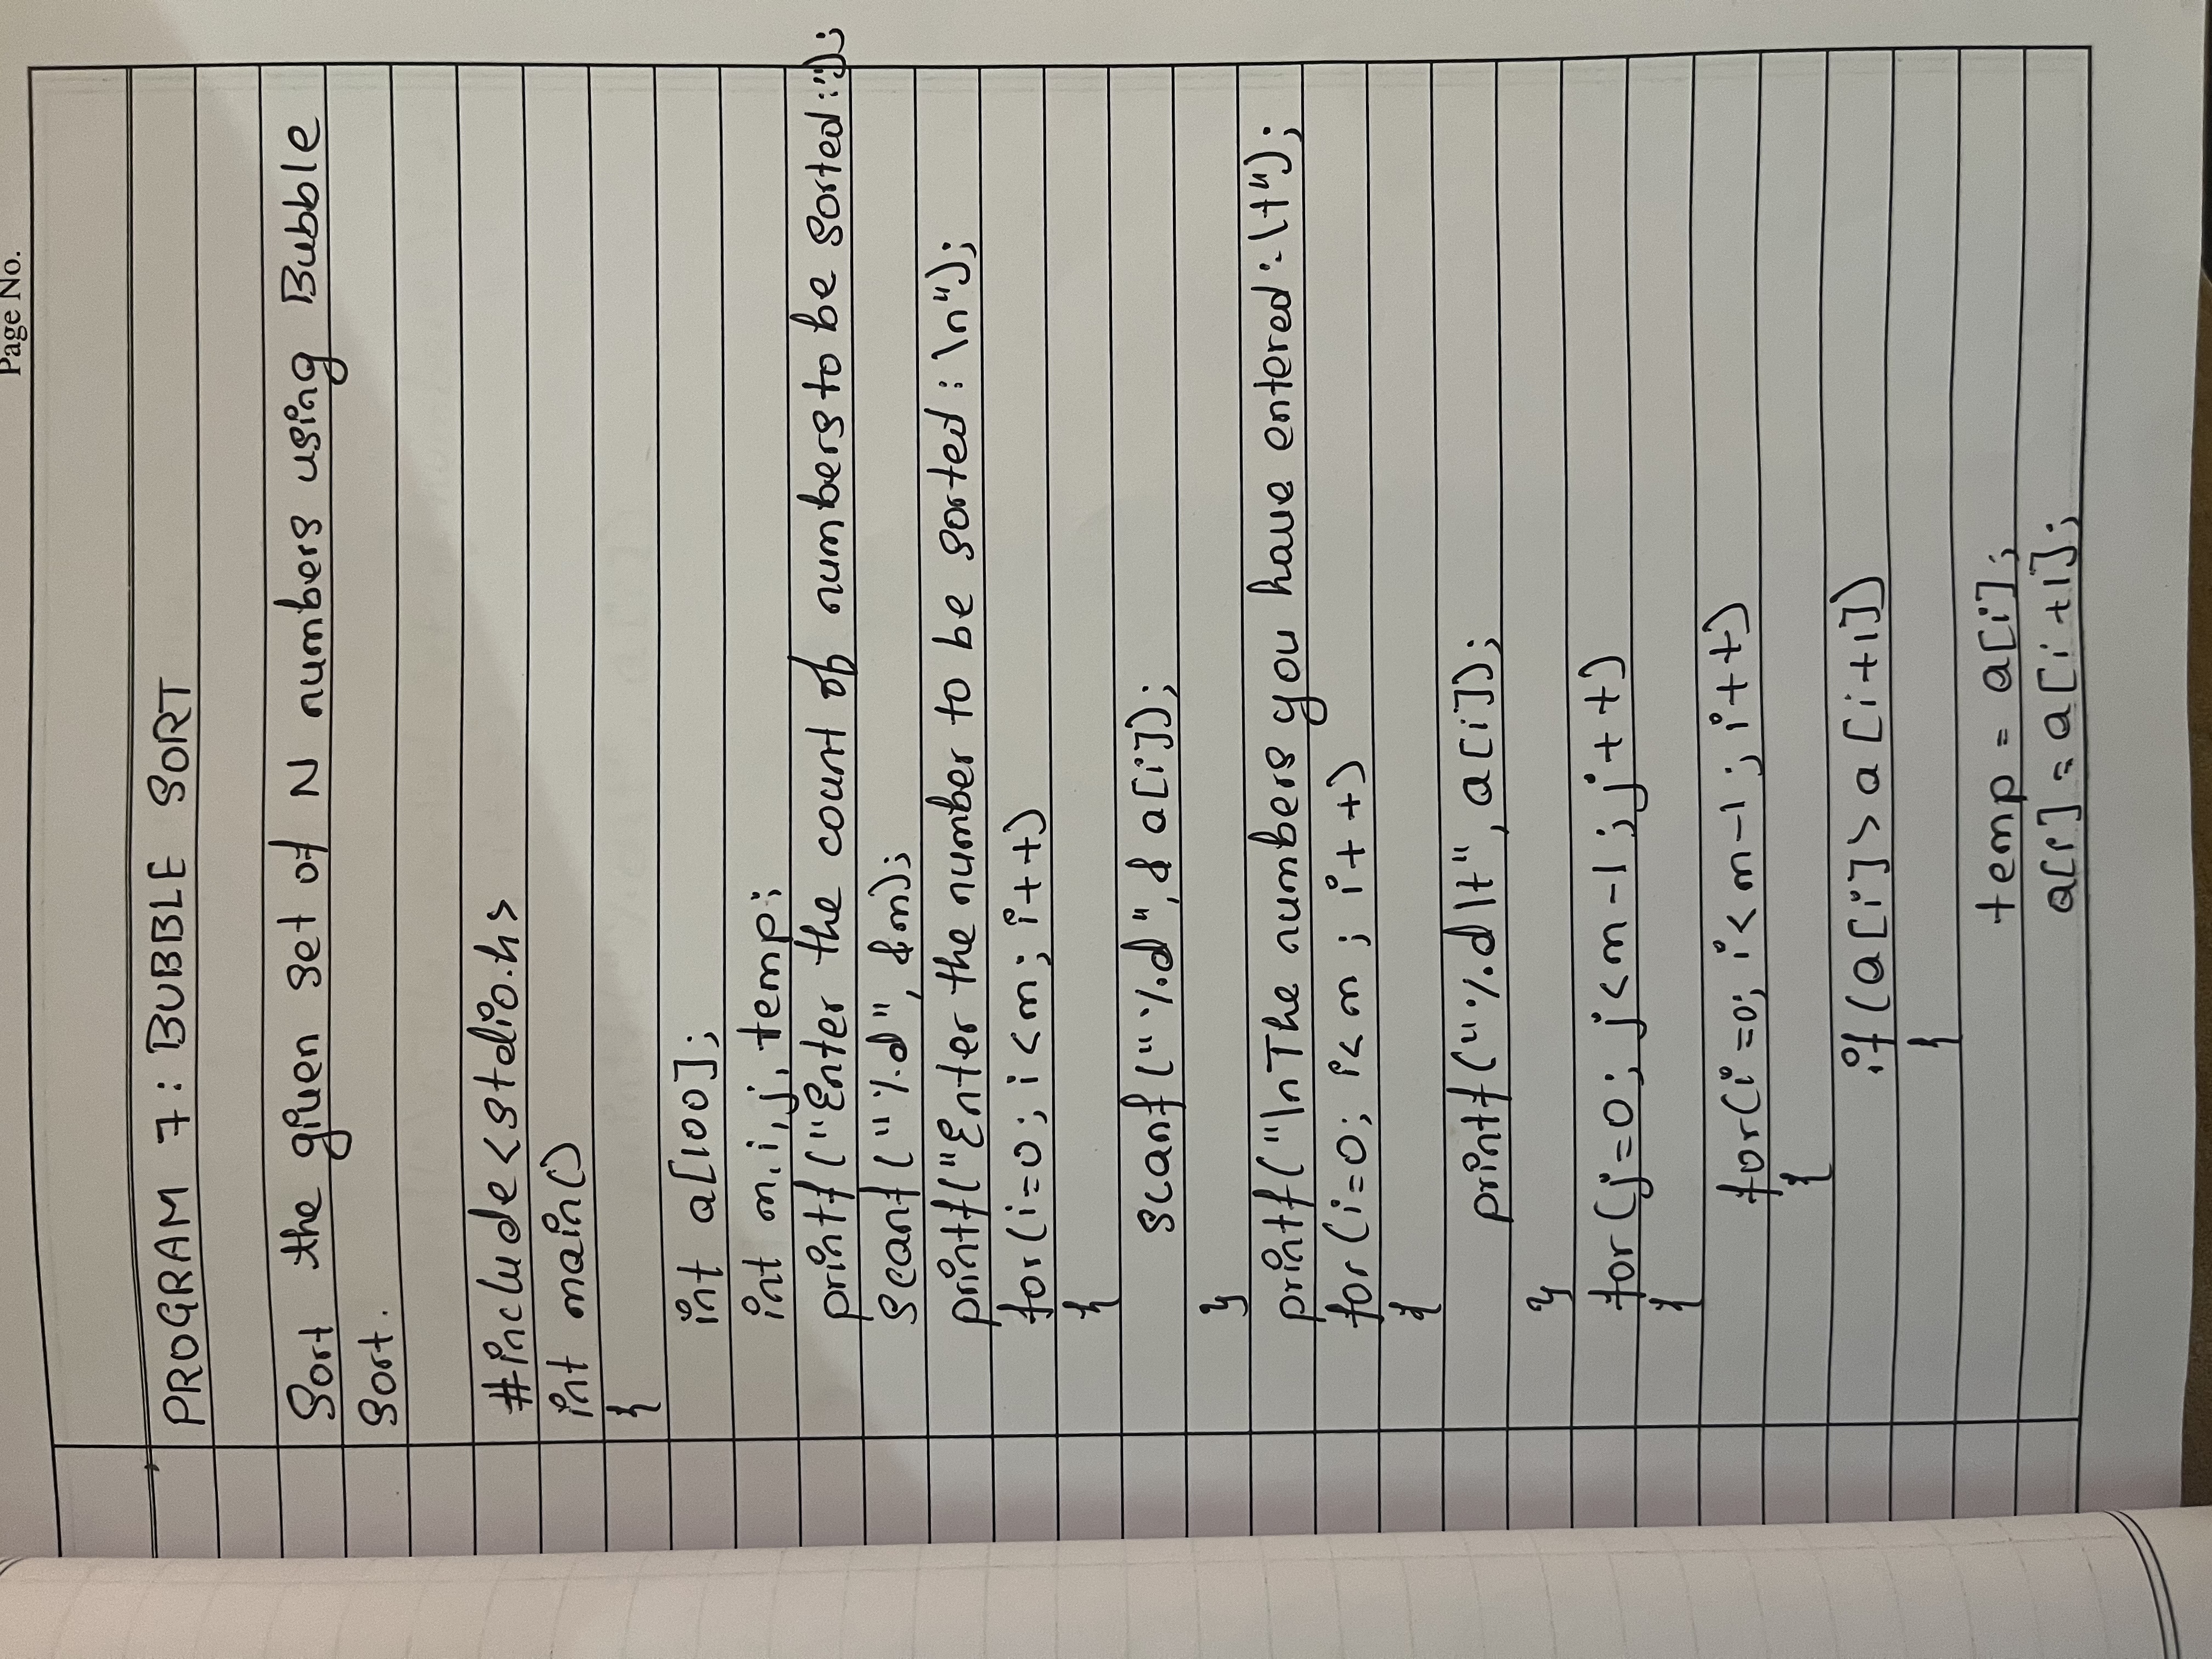 Page No.
PROGRAM 7: BUBBLE SORT
Sort the given set of N numbers using Bubble
Sort.
#include<stdio.h>
int main()
{
int a[100];
int m, i, j, temp;
printf("Enter the count of numbers to be sorted:");
scanf("%d", &m);
printf("Enter the number to be sorted: \n");
for(i=0; i<m; i++)
{
scanf("%d", & a[i]);
}
printf("\nThe numbers you have entered:\t");
for(i=0; i<m; i++)
{
printf("%d\t", a[i]);
}
for(j=0; j<m-1; j++)
{
for(i=0; i<m-1; i++)
{
if(a[i]>a[i+1])
{
temp = a[i];
a[i] = a[i+1];